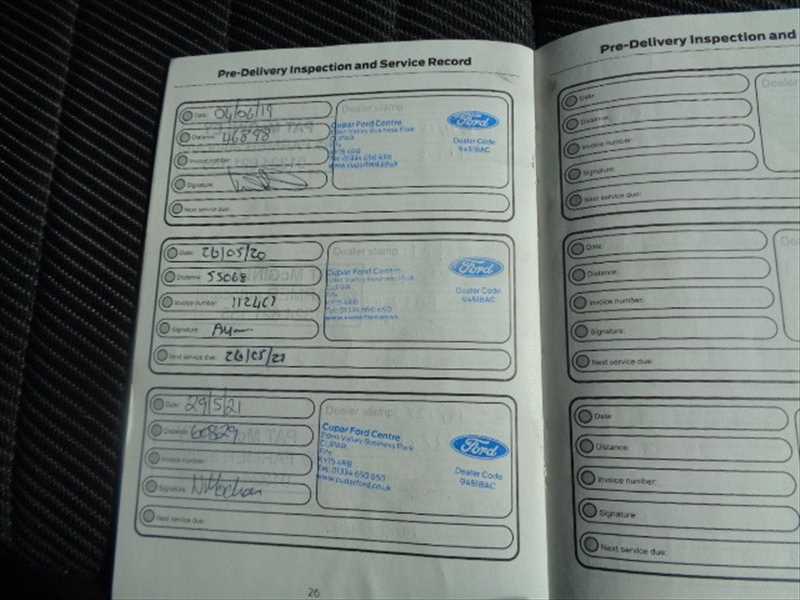 Pre-Delivery Inspection and Service Record
Date: 04/06/19
Distance: 46898
Invoice number:
Signature:
Next service due:
Dealer stamp
Cupar Ford Centre
Eden Valley Business Park
CUPAR
Fife
KY15 4RB
Tel: 01334 650 650
www.cuparford.co.uk
Ford
Dealer Code
9451BAC
Date: 26/05/20
Distance: 55068
Invoice number: 112467
Signature:
Next service due: 26/05/21
Dealer stamp
Cupar Ford Centre
Eden Valley Business Park
CUPAR
Fife
KY15 4RB
Tel: 01334 650 650
www.cuparford.co.uk
Ford
Dealer Code
9451BAC
Date: 29/5/21
Distance: 60829
Invoice number:
Signature:
Next service due:
Dealer stamp
Cupar Ford Centre
Eden Valley Business Park
CUPAR
Fife
KY15 4RB
Tel: 01334 650 650
www.cuparford.co.uk
Ford
Dealer Code
9451BAC
26
Pre-Delivery Inspection and
Date:
Distance:
Invoice number:
Signature:
Next service due:
Dealer
Date:
Distance:
Invoice number:
Signature:
Next service due:
Date:
Distance:
Invoice number:
Signature:
Next service due: